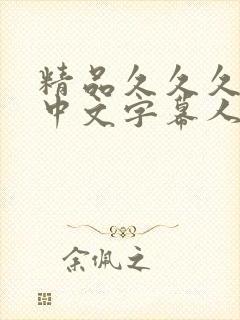 精品久久久
中文字幕人
余佩之